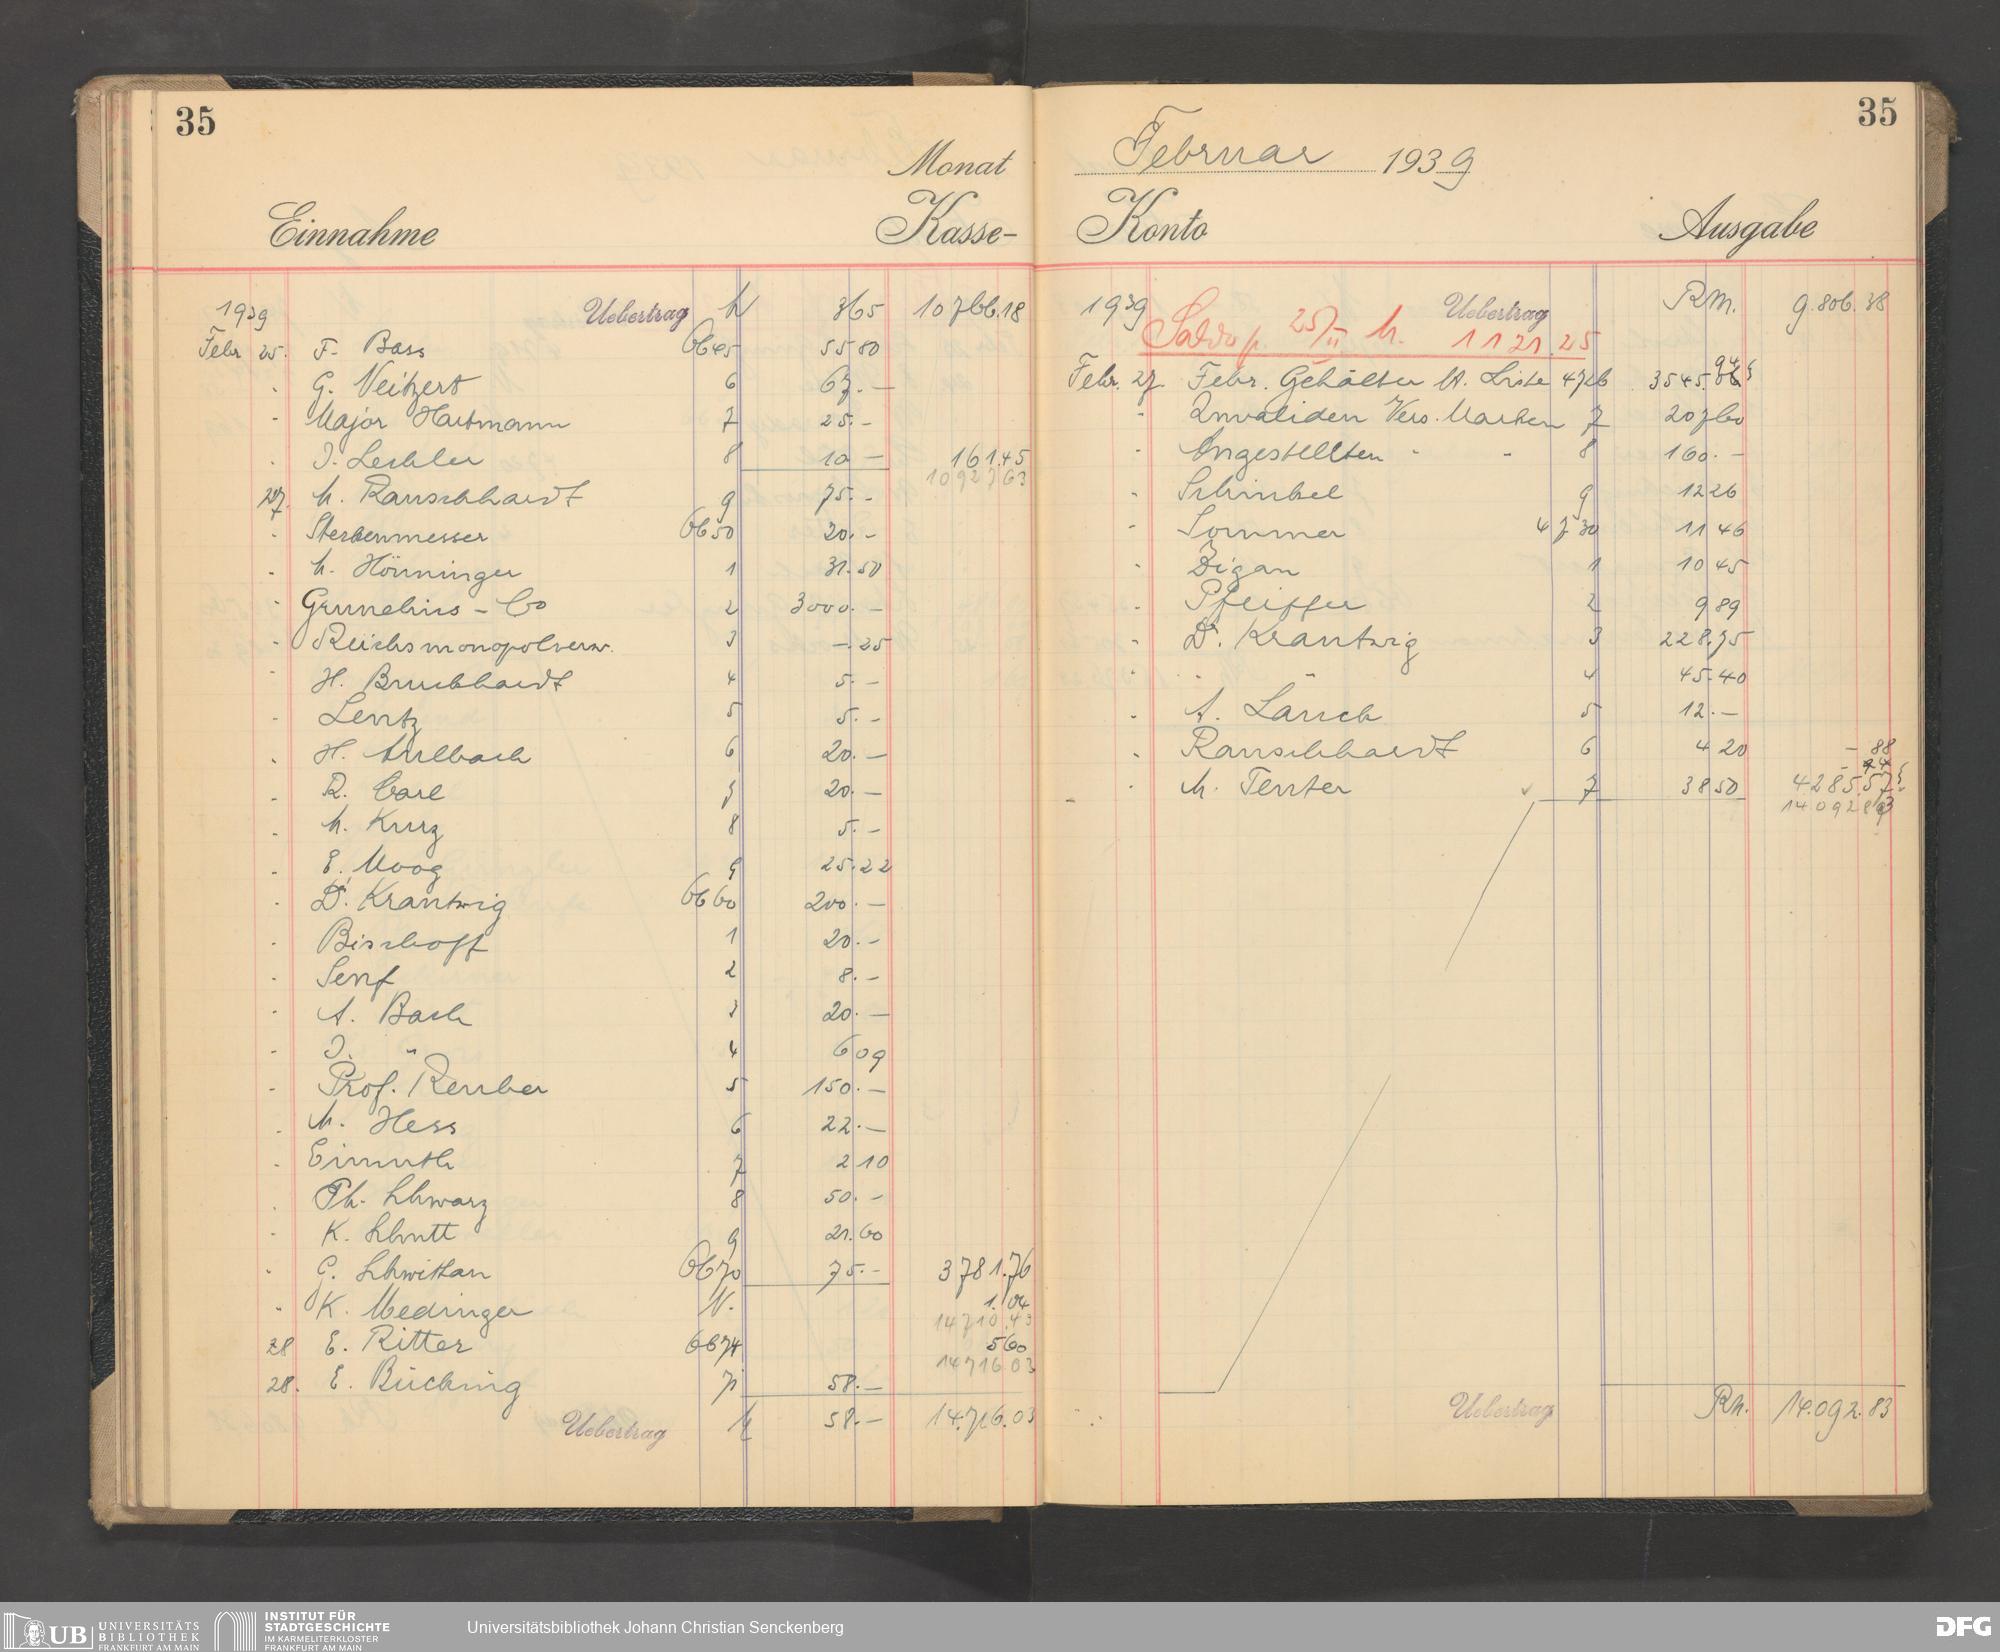 35
Monat
Einnahme Kasse-
1939 Uebertrag M 365 10766.18
Febr 25. F. Bass 6645 55 80
" G. Neitzert 6 67.—
" Major Hartmann 7 25.-
" J. Lechler 8 10 — 161.45
10927 63
27. M. Rauschhardt 9 75.-
" Sterkenmesser 6650 20.-
" M. Hönninger 1 31.50
" Grunelius - Co 2 3000.—
" Reichsmonopolverw. 3 —.25
" H. Bruchhardt 4 5.-
" Lentz 5 5.-
" H. Aulbach 6 20.—
" R. Carl 7 20.—
" M. Kurz 8 5.-
" E. Moog 9 25.22
" Dr. Krantwig 6660 200.—
" Bischoff 1 20.-
" Senf 2 8.-
" A. Bach 3 20.—
" J. " 4 6 09
" Prof. Reuber 5 150.—
" M. Hess 6 22.—
" Einmuth 7 2 10
" Ph. Schwarz 8 50.-
" K. Schutt 9 21.60
" G. Schwittan 6670 75.- 3781.76
" K. Medinger N. 1.04
14710.43
28 E. Ritter 6674 5 60
14716.03
28. E. Bücking 58.—
Uebertrag M 58.— 14.716.03
35
Februar 1939
Konto Ausgabe
1939 Uebertrag RM. 9.806.38
Saldo p. 25/II M. 1121.25
Febr. 27. Febr. Gehälter lt. Liste 4726 3545.
94
" Invaliden Vers. Marken 7 207 60
" Angestellten " " 8 160.-
" Schinkel 9 12 26
" Sommer 4730 11 46
" Zigan 1 10 45
" Pfeiffer 2 9 89
" Dr. Krantwig 3 228.75
" " 4 45.40
" A. Läuch 5 12.—
" Rauschhardt 6 4 20 — 88
" M. Tenter 7 38 50 4285.57
14092 83
Uebertrag RM. 14.092.83
UB UNIVERSITÄTS
BIBLIOTHEK
FRANKFURT AM MAIN
INSTITUT FÜR
STADTGESCHICHTE
IM KARMELITERKLOSTER
FRANKFURT AM MAIN
Universitätsbibliothek Johann Christian Senckenberg
DFG